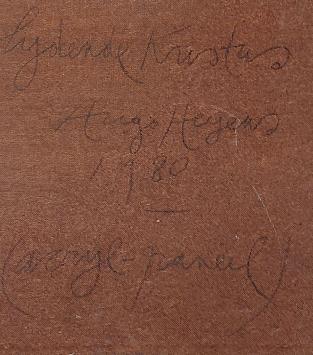 Lydende Kristus
Hugo Heyens
1980
(acryl-paneel)